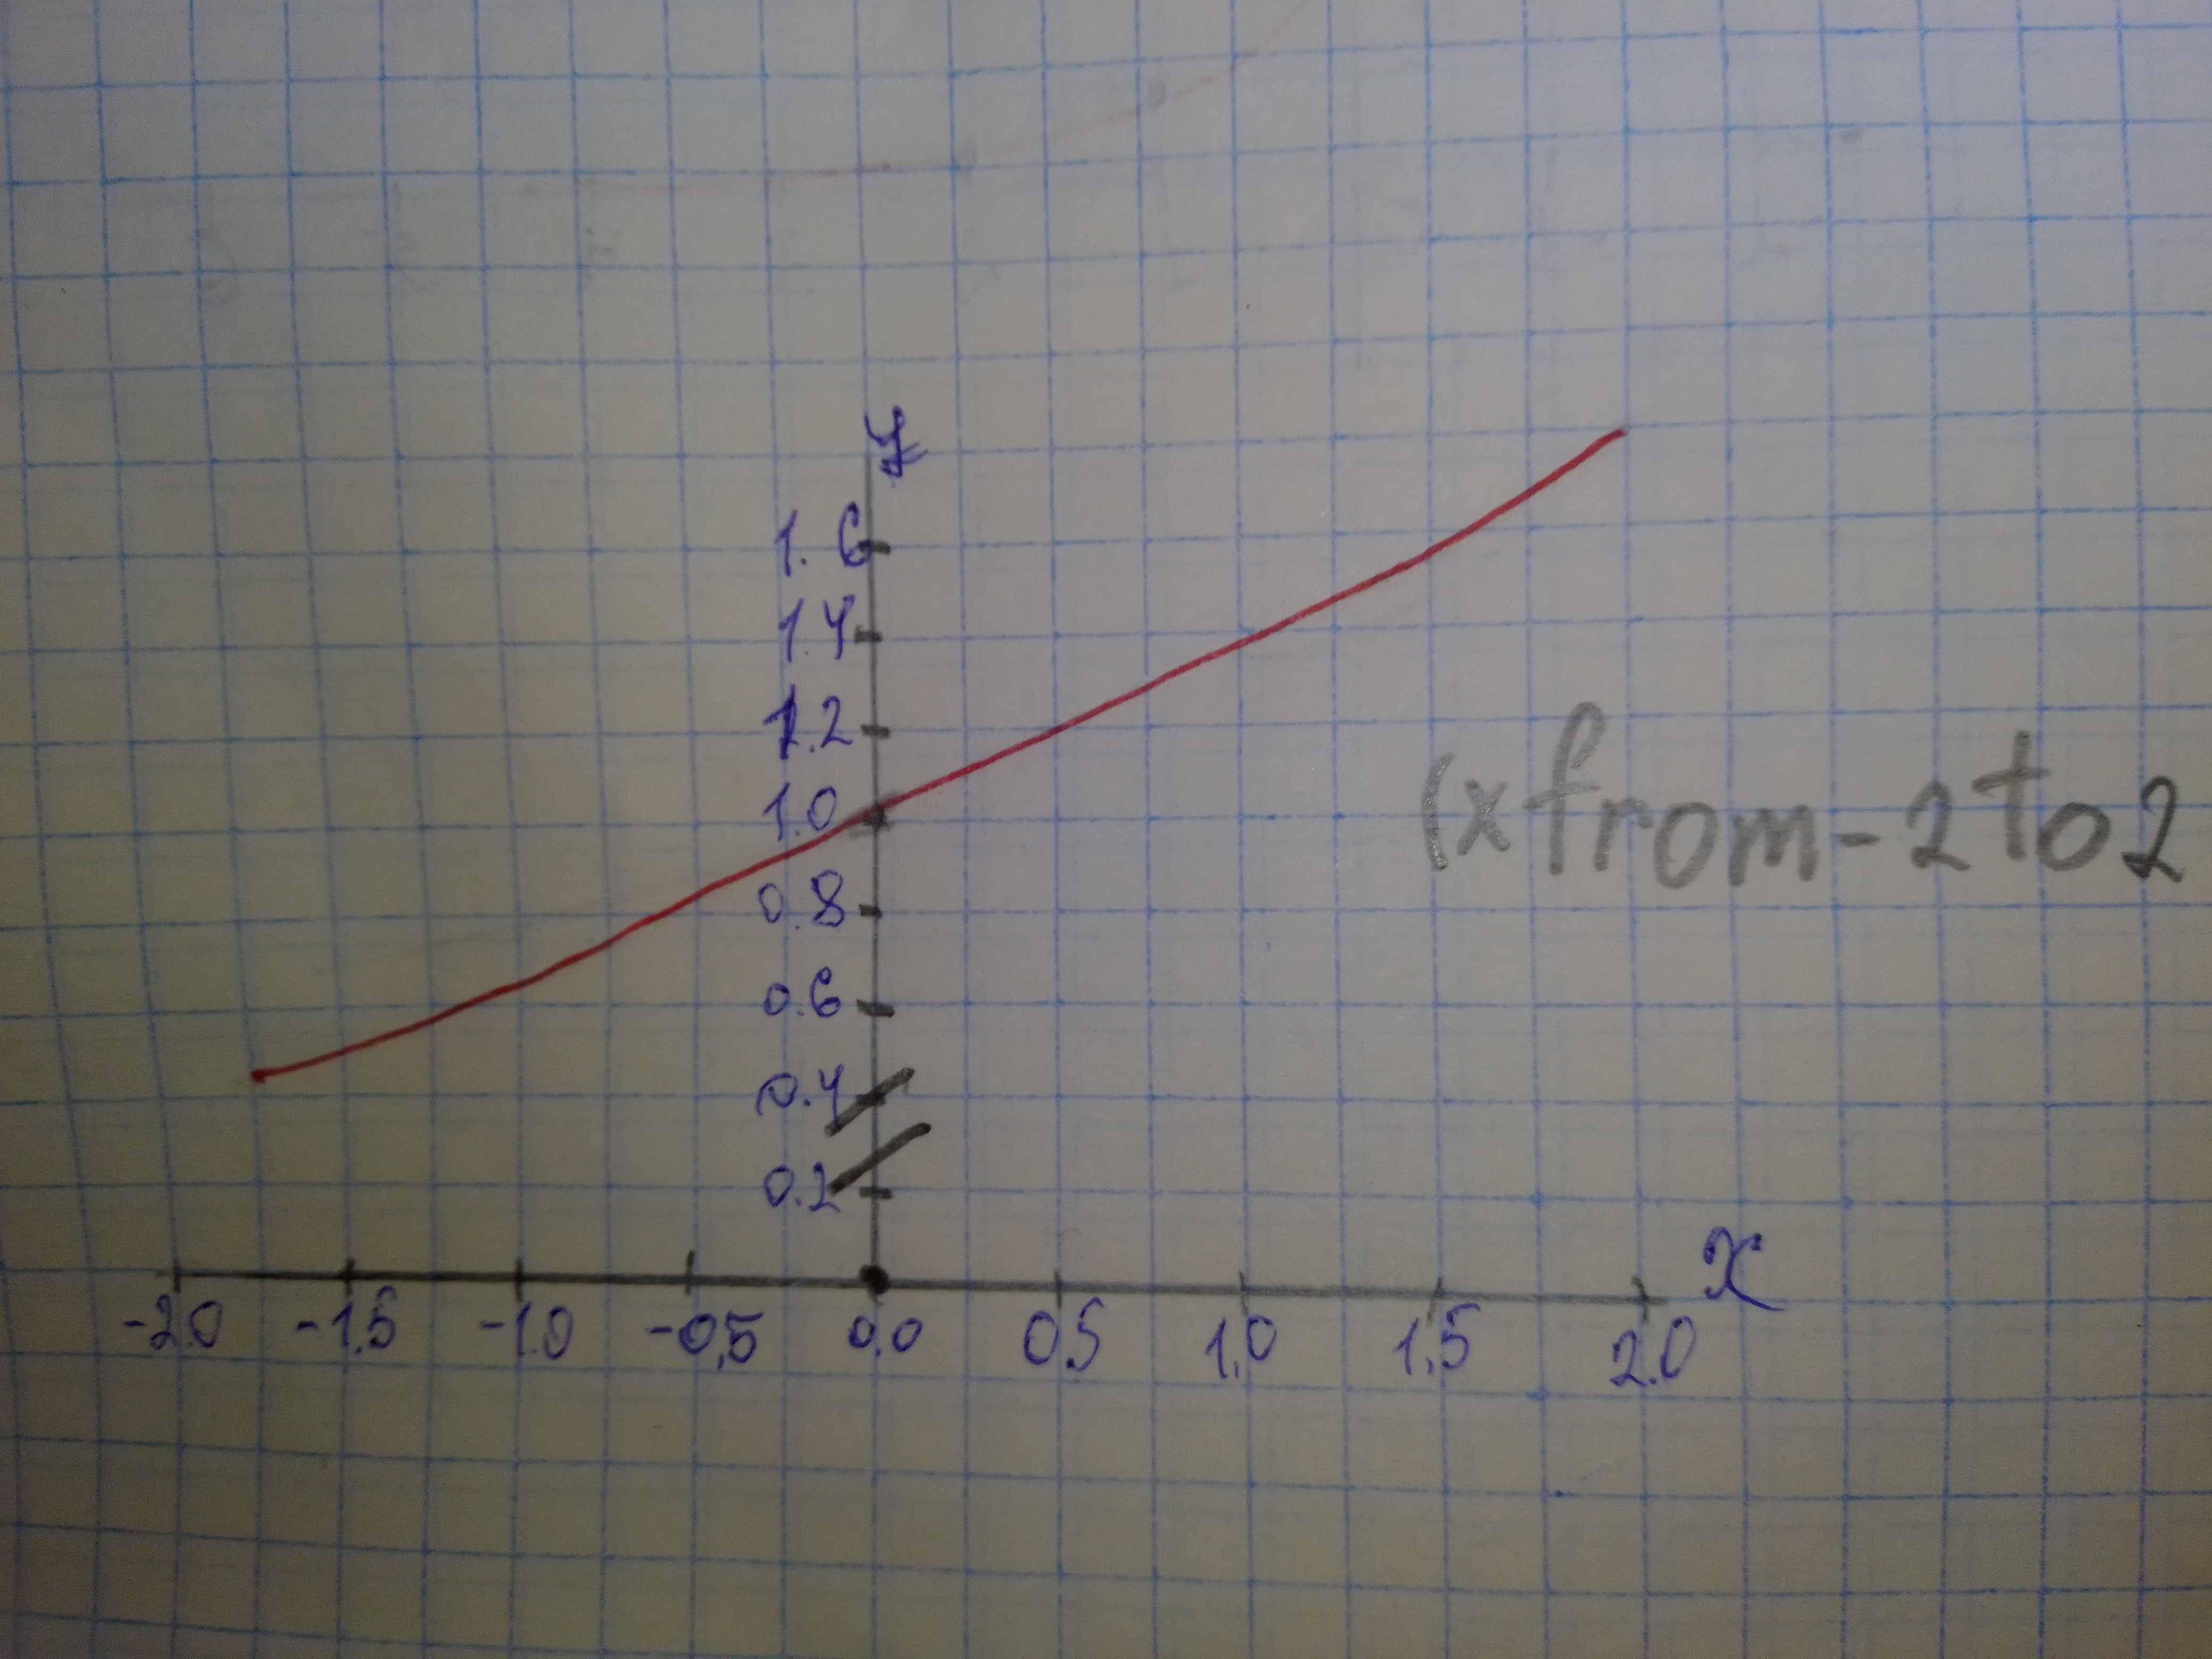 y
1.6
1.4
1.2
1.0
0.8
0.6
0.4
0.2
(x from -2 to 2
x
-2.0 -1.5 -1.0 -0,5 0,0 0.5 1.0 1.5 2.0